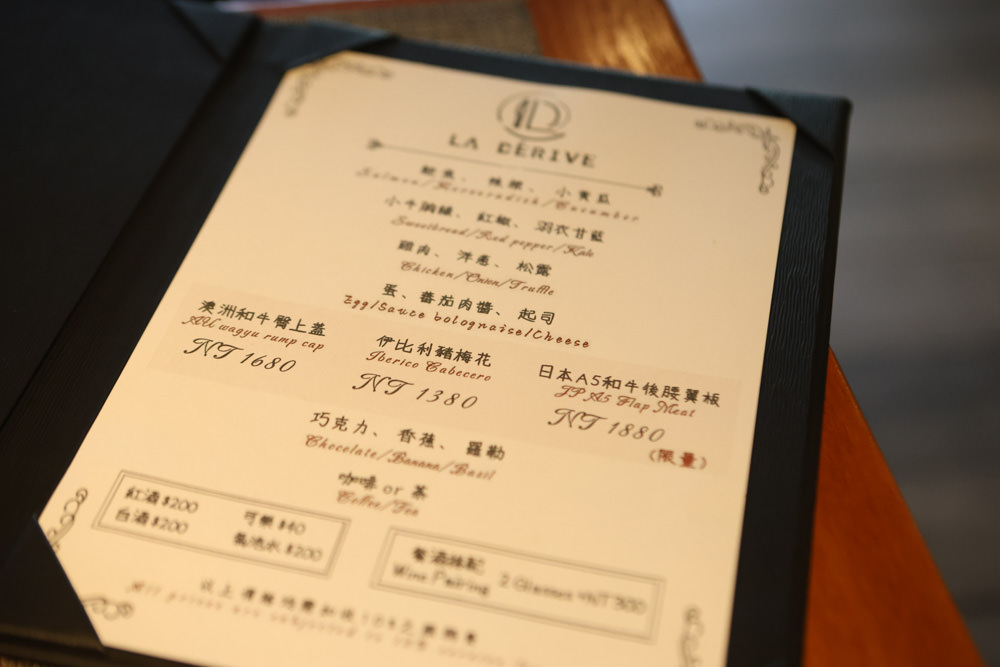 LA DÉRIVE
鮭魚、辣根、小黃瓜
Salmon/Horseradish/Cucumber
小牛胸腺、紅椒、羽衣甘藍
Sweetbread/Red pepper/Kale
雞肉、洋蔥、松露
Chicken/Onion/Truffle
蛋、蕃茄肉醬、起司
Egg/Sauce bolognaise/Cheese
澳洲和牛臀上蓋
AU wagyu rump cap
NT 1680
伊比利豬梅花
Iberico Cabecero
NT 1380
日本A5和牛後腰翼板
JP A5 Flap Meat
NT 1880
(限量)
巧克力、香蕉、羅勒
Chocolate/Banana/Basil
咖啡 or 茶
Coffee/Tea
紅酒 $200
白酒 $200
可樂 $40
氣泡水 $200
餐酒搭配
Wine Pairing
2 Glasses
以上價格均需加收10%之服務費
All prices are subjected to 10% service